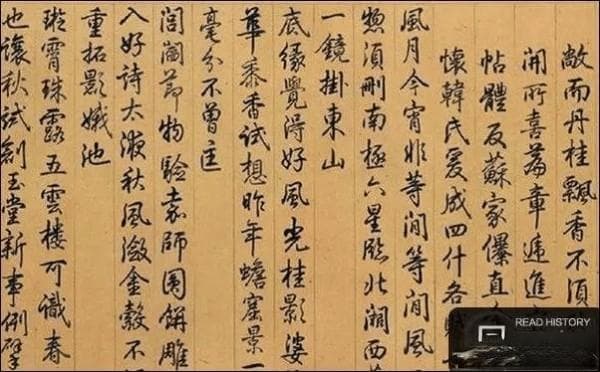 敞而丹桂飄香不須
開所喜篇章遞進
帖體反蘇家儤直
懷韓氏爰成四什各
風月今宵非等閒等閒風
惣須刪南極六星臨北闕西
一鏡掛東山
底緣覺得好風光桂影婆
華黍香試想昨年蟾窟景一
毫分不曾
閶闔節物驗袁師圓餅雕
入好詩太液秋風瀲金縠不
重拓影娥池
璇霄珠露五雲樓可識春
也讓秋試創玉堂新事例擘
READ HISTORY